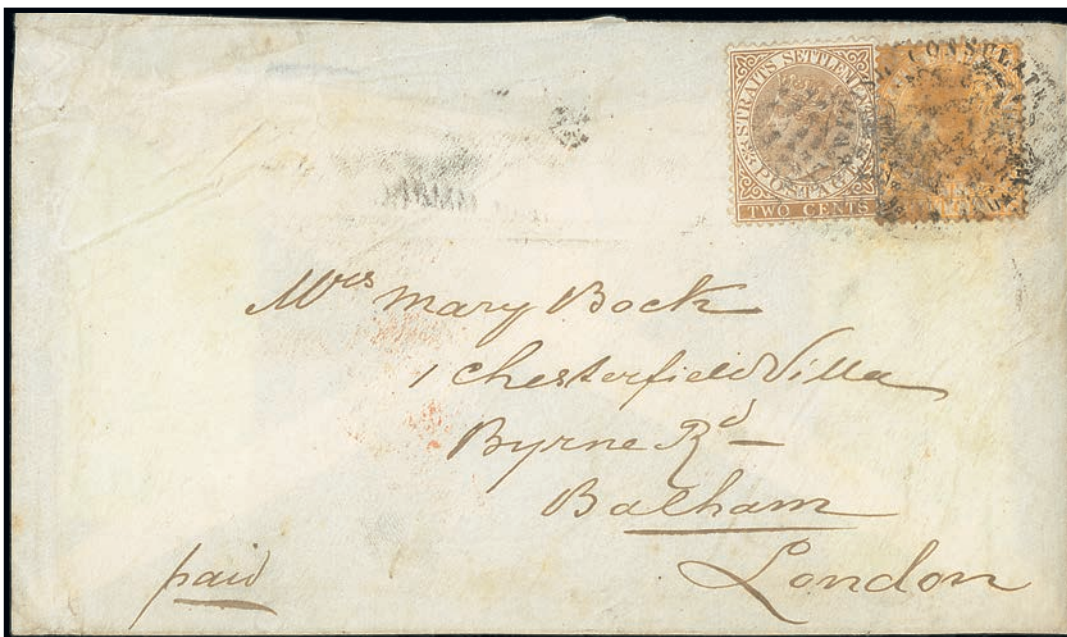 STRAITS SETTLEMENTS
POSTAGE
TWO CENTS
CONSULATE
Mrs Mary Bock
1 Chesterfield Villa
Byrne Rd
Balham
London
paid